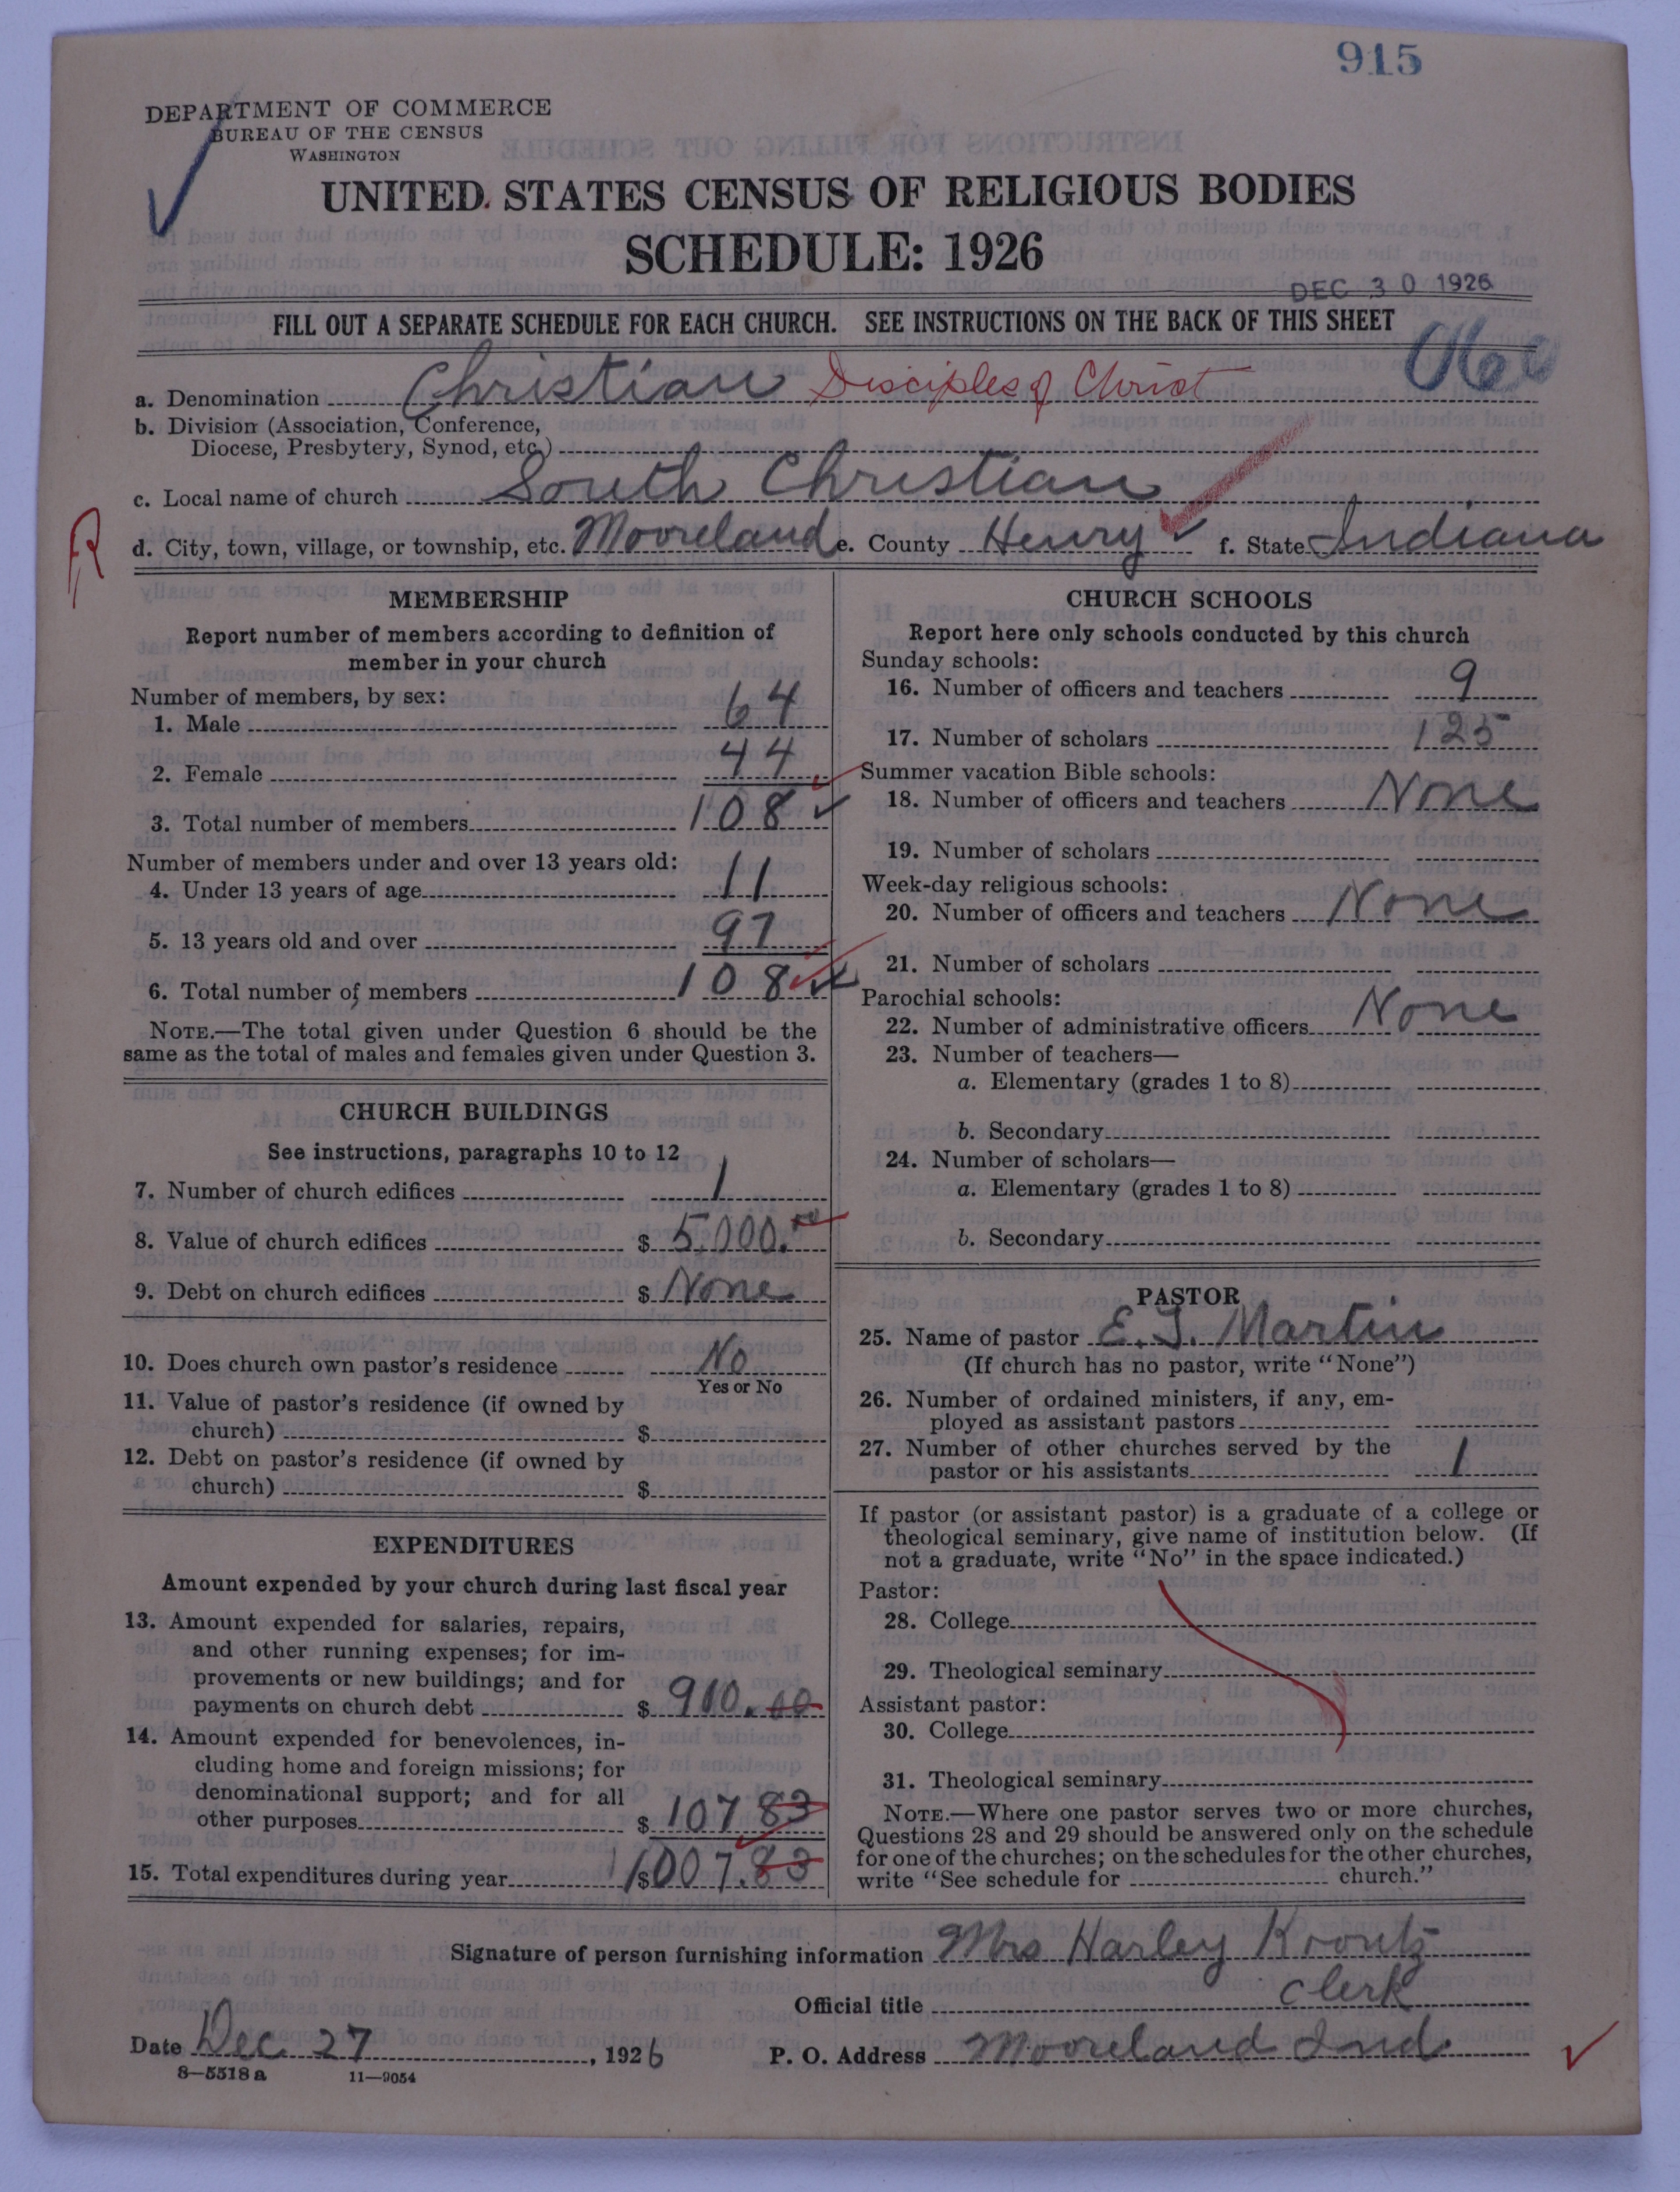 915
DEPARTMENT OF COMMERCE
BUREAU OF THE CENSUS
WASHINGTON
UNITED STATES CENSUS OF RELIGIOUS BODIES
SCHEDULE: 1926
DEC 30 1926
FILL OUT A SEPARATE SCHEDULE FOR EACH CHURCH. SEE INSTRUCTIONS ON THE BACK OF THIS SHEET
a. Denomination Christian Disciples of Christ
b. Division (Association, Conference,
Diocese, Presbytery, Synod, etc.)
c. Local name of church South Christian
R
d. City, town, village, or township, etc. Mooreland e. County Henry f. State Indiana
MEMBERSHIP
Report number of members according to definition of
member in your church
Number of members, by sex:
1. Male 64
2. Female 44
3. Total number of members 108
Number of members under and over 13 years old:
4. Under 13 years of age 11
5. 13 years old and over 97
6. Total number of members 108
NOTE.—The total given under Question 6 should be the
same as the total of males and females given under Question 3.
CHURCH BUILDINGS
See instructions, paragraphs 10 to 12
7. Number of church edifices 1
8. Value of church edifices $ 5,000.00
9. Debt on church edifices $ None
10. Does church own pastor's residence No
Yes or No
11. Value of pastor's residence (if owned by
church) $
12. Debt on pastor's residence (if owned by
church) $
EXPENDITURES
Amount expended by your church during last fiscal year
13. Amount expended for salaries, repairs,
and other running expenses; for im-
provements or new buildings; and for
payments on church debt $ 900.00
14. Amount expended for benevolences, in-
cluding home and foreign missions; for
denominational support; and for all
other purposes $ 107 83
15. Total expenditures during year $ 1007.83
CHURCH SCHOOLS
Report here only schools conducted by this church
Sunday schools:
16. Number of officers and teachers 9
17. Number of scholars 125
Summer vacation Bible schools:
18. Number of officers and teachers None
19. Number of scholars
Week-day religious schools:
20. Number of officers and teachers None
21. Number of scholars
Parochial schools:
22. Number of administrative officers None
23. Number of teachers—
a. Elementary (grades 1 to 8)
b. Secondary
24. Number of scholars—
a. Elementary (grades 1 to 8)
b. Secondary
PASTOR
25. Name of pastor E. J. Martin
(If church has no pastor, write "None")
26. Number of ordained ministers, if any, em-
ployed as assistant pastors
27. Number of other churches served by the
pastor or his assistants 1
If pastor (or assistant pastor) is a graduate of a college or
theological seminary, give name of institution below. (If
not a graduate, write "No" in the space indicated.)
Pastor:
28. College
29. Theological seminary
Assistant pastor:
30. College
31. Theological seminary
NOTE.—Where one pastor serves two or more churches,
Questions 28 and 29 should be answered only on the schedule
for one of the churches; on the schedules for the other churches,
write "See schedule for church."
Signature of person furnishing information Mrs Harley Koontz
Official title Clerk
Date Dec 27, 1926 P. O. Address Mooreland Ind.
8—5518 a 11—9054